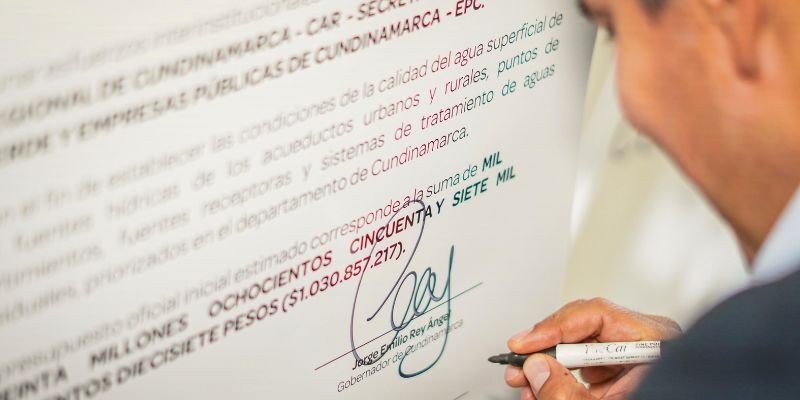 esfuerzos interinstitucionales
REGIONAL DE CUNDINAMARCA - CAR - SECRET
Y EMPRESAS PÚBLICAS DE CUNDINAMARCA - EPC.
el fin de establecer las condiciones de la calidad del agua superficial de
fuentes hídricas de los acueductos urbanos y rurales, puntos de
vertimientos, fuentes receptoras y sistemas de tratamiento de aguas
priorizados en el departamento de Cundinamarca.
presupuesto oficial inicial estimado corresponde a la suma de MIL
TREINTA MILLONES OCHOCIENTOS CINCUENTA Y SIETE MIL
DIECISIETE PESOS ($1.030.857.217).
Jorge Emilio Rey Ángel
Gobernador de Cundinamarca